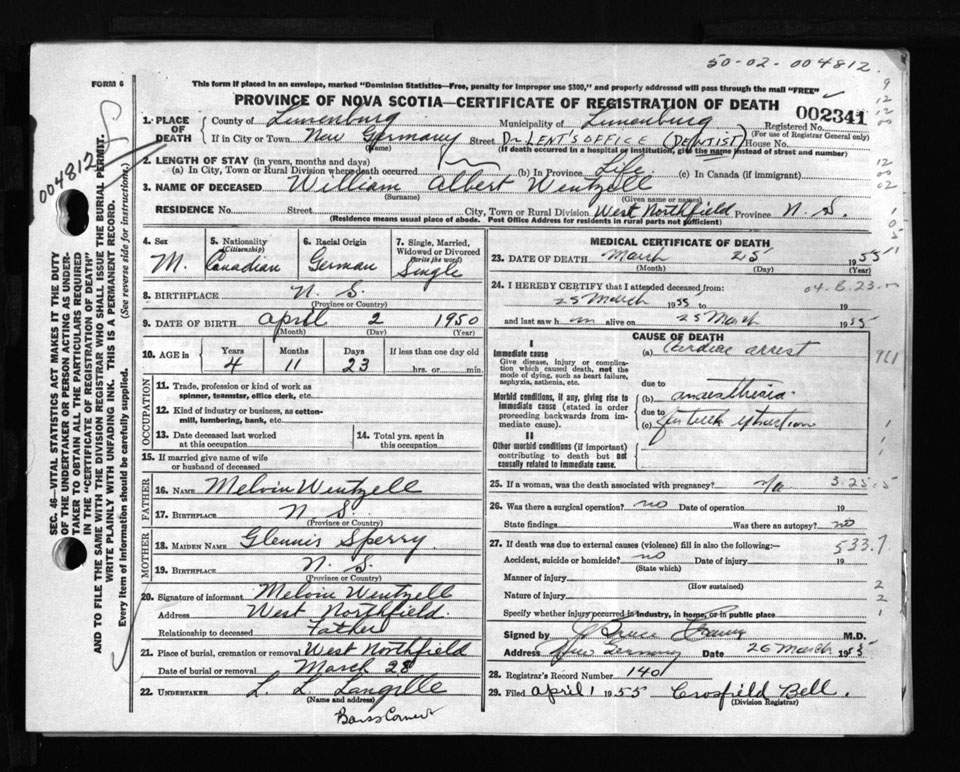 50-02-004812.
FORM 6
This form if placed in an envelope, marked "Dominion Statistics—Free, penalty for improper use $300," and properly addressed will pass through the mail "FREE"
PROVINCE OF NOVA SCOTIA—CERTIFICATE OF REGISTRATION OF DEATH
002341
1. PLACE OF DEATH
County of Lunenburg Municipality of Lunenburg Registered No.
(For use of Registrar General only)
If in City or Town New Germany Street Dr LENT'S OFFICE (DENTIST) House No.
(Name) (If death occurred in a hospital or institution, give the name instead of street and number)
2. LENGTH OF STAY (in years, months and days)
(a) In City, Town or Rural Division where death occurred (b) In Province Life. (c) In Canada (if immigrant)
3. NAME OF DECEASED William Albert Wentzell
(Surname) (Given name or names)
RESIDENCE No. Street City, Town or Rural Division West Northfield Province N. S.
(Residence means usual place of abode. Post Office Address for residents in rural parts not sufficient)
004812
SEC. 46—VITAL STATISTICS ACT MAKES IT THE DUTY
OF THE UNDERTAKER OR PERSON ACTING AS UNDER-
TAKER TO OBTAIN ALL THE PARTICULARS REQUIRED
IN THE "CERTIFICATE OF REGISTRATION OF DEATH"
AND TO FILE THE SAME WITH THE DIVISION REGISTRAR WHO SHALL ISSUE THE BURIAL PERMIT.
WRITE PLAINLY WITH UNFADING INK. THIS IS A PERMANENT RECORD.
Every item of information should be carefully supplied. (See reverse side for instructions)
4. Sex M.
5. Nationality (Citizenship) Canadian
6. Racial Origin German
7. Single, Married, Widowed or Divorced (write the word) Single
8. BIRTHPLACE N. S.
(Province or Country)
9. DATE OF BIRTH April 2 1950
(Month) (Day) (Year)
10. AGE in Years 4 Months 11 Days 23 If less than one day old
hrs. or min.
OCCUPATION
11. Trade, profession or kind of work as
spinner, teamster, office clerk, etc.
12. Kind of industry or business, as cotton-
mill, lumbering, bank, etc.
13. Date deceased last worked
at this occupation
14. Total yrs. spent in
this occupation
15. If married give name of wife
or husband of deceased
FATHER
16. NAME Melvin Wentzell
17. BIRTHPLACE N. S.
(Province or Country)
MOTHER
18. MAIDEN NAME Glennis Sperry.
19. BIRTHPLACE N. S.
(Province or Country)
20. Signature of informant Melvin Wentzell
Address West Northfield.
Relationship to deceased Father
21. Place of burial, cremation or removal West Northfield
Date of burial or removal March 28
22. UNDERTAKER L. L. Langille
(Name and address)
Barss Corner
MEDICAL CERTIFICATE OF DEATH
23. DATE OF DEATH March 25 1955
(Month) (Day) (Year)
24. I HEREBY CERTIFY that I attended deceased from:
04.6.23.
25 March 1955 to 19
and last saw h im alive on 25 March 1955
CAUSE OF DEATH
I
Immediate cause
Give disease, injury or complica-
tion which caused death, not the
mode of dying, such as heart failure,
asphyxia, asthenia, etc.
(a) Cardiac arrest
due to
Morbid conditions, if any, giving rise to
Immediate cause (stated in order
proceeding backwards from im-
mediate cause).
(b) anaesthesia
due to
(c) for teeth extraction
II
Other morbid conditions (if important)
contributing to death but not
causally related to immediate cause.
25. If a woman, was the death associated with pregnancy? n/a
3.25.5
26. Was there a surgical operation? no Date of operation 19
State findings Was there an autopsy? no
27. If death was due to external causes (violence) fill in also the following:—
533.7
Accident, suicide or homicide? no Date of injury 19
(State which)
Manner of injury
(How sustained)
Nature of injury
Specify whether injury occurred in industry, in home, or in public place
Signed by J Bruce M.D.
Address New Germany Date 26 March 1955
28. Registrar's Record Number 140
29. Filed April 1 1955 Crosfield Bell.
(Division Registrar)